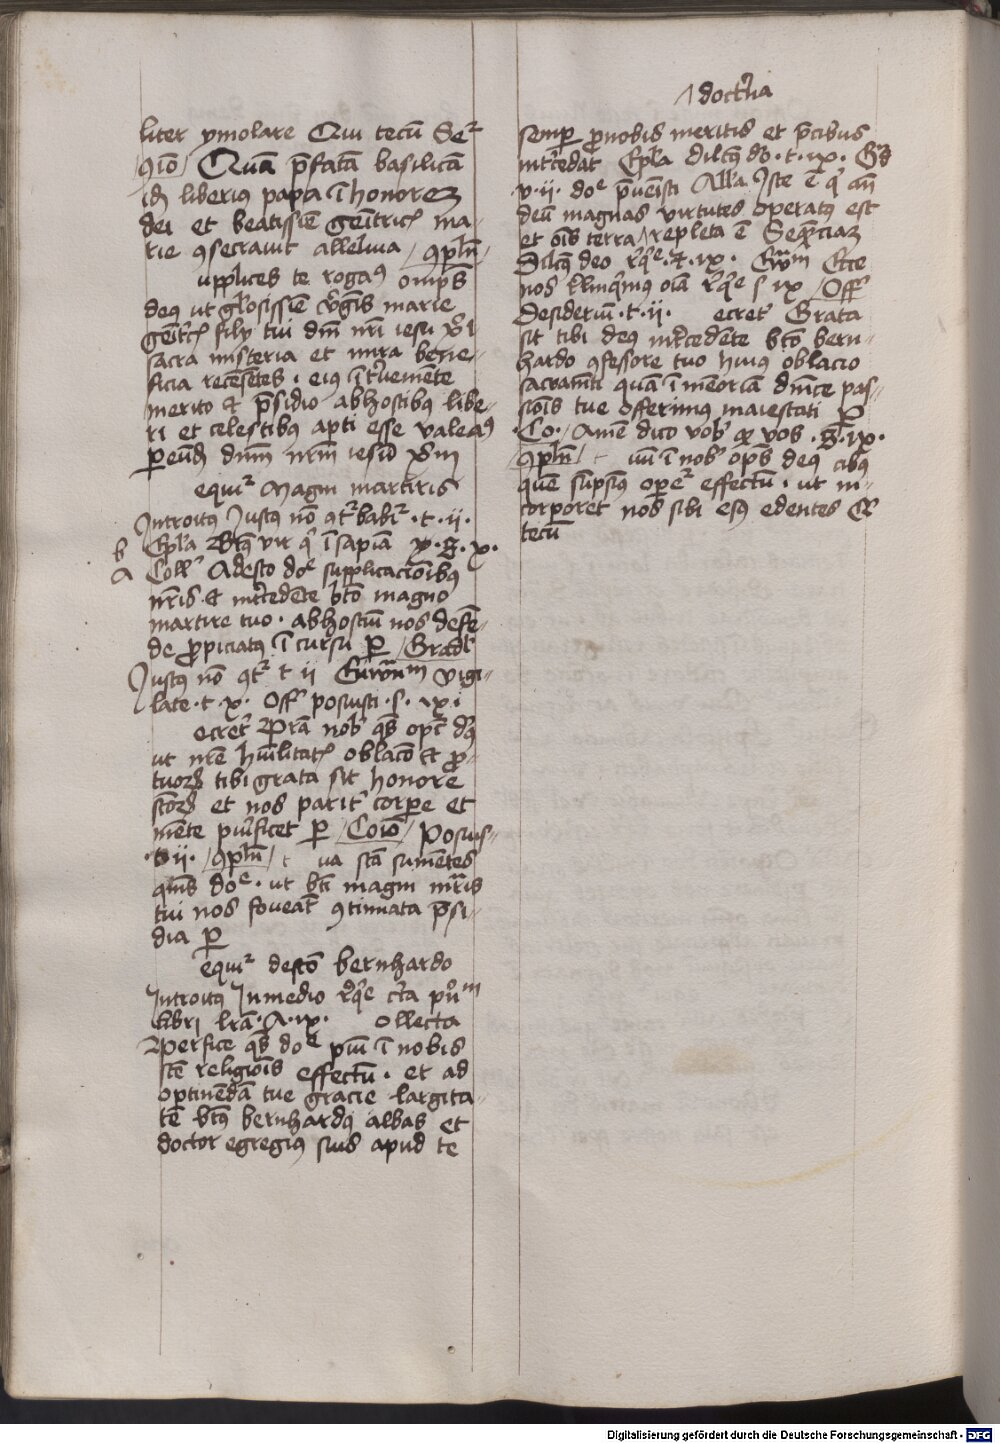 liter ymolare Qui tecū Seꝛ
qīo Quā p̄fatā basilicā
id liberius papa ī honorem
dei et beatissīe geītricꝭ ma-
rie ꝯsecrauit alleluia ꝯpln̄
upplices te rogaꝰ omps̄
deꝰ ut gl'osissīe v'gīs marie
geīt'cꝭ filij tui dnī nrī iesu xp̄i
sacra misteria et mira bene-
ficia recēsētes · eiꝰ īt'uemēte
merito et p̄sidio ab hostibꝰ libe-
ri et celestibꝰ apti esse valeaꝰ
dnm̄ nrm̄ iesū xp̄m
equiꝛ Magni martiris
Introitꝰ Justꝰ nō ꝯtꝛbabiꝛ · t · ii ·
b Ep̄la Btꝰ vir q' ī sapīa
a Coll' Adesto doe supplicacionībꝰ
nr̄is · et int'cedēte bt̄o magno
martire tuo · ab hostiū nos defē-
de ꝓpiciatꝰ ī cursu ꝑ Grad'
Justꝰ nō ꝯtꝛ t ii Ewm Vigi-
late · t · x · Off' posuisti · s · ix ·
ecret' Prā nob' qs̄ opc̄ dꝰ
ut nr̄e hūilitatꝭ oblacō et ꝓ
tuoꝝ tibi grata sit honore
sc̄oꝝ et nos parit' corpe et
mēte pu'ficet ꝑ Coīo Posuis-
· ii · ꝯpln̄ t ua sc̄a sumētes
qms̄ doe · ut bt̄i magni mr̄is
tui nos foveat ꝯtinuata p̄si-
dia ꝑ
equiꝛ de sct̄o bernhardo
Introitꝰ In medio rq'e
libri lr̄a · A · ix · ollecta
Perfice qs̄ doe piū ī nobis
sc̄e religiois effectū · et ad
optinēdā tue gracie largita-
tē bt̄ꝰ bernhardꝰ abbas et
doctor egregius suis apud te
doct'na
semp ꝓ nobis meritis et p̄cibus
int'cedat Ep̄la dilcꝰ do · t · ix · Gd
v · ii · doe p̄uēisti Alla Iste ē q' an̄
deū magnas virtutes operatꝰ est
et oīs terra repleta ē Seq̄nciam
Dilcꝰ deo rq'e · t · ix · Ewm Ecce
nos rl'inqmꝰ oīa rq'e s ix Off'
Desideriū · t · ii · ecret' Grata
sit tibi deꝰ int'cedēte bt̄o bern-
hardo ꝯfessore tuo huiꝰ oblacio
sacramti quā ī meoriā dnīce pas-
sionis tue offerimꝰ maiestati ꝑ
· Co · Amē dico vob' qꝫ vos · s · ix ·
ꝯpln̄ t uū ī nob' ops̄ deꝰ cibꝰ
quē sūpsimꝰ opeꝛ effectū · ut in-
corporet nos sibi esꝰ edentes Q'
tecū
Digitalisierung gefördert durch die Deutsche Forschungsgemeinschaft · DFG